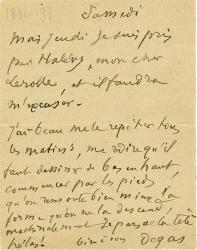 Samedi
Mais jeudi je suis pris
par Halévy, mon cher
Lerolle, et il faudra
m'excuser.
J'ai beau me le répéter tous
les matins, me redire qu'il
faut dessiner de bas en haut,
commencer par les pieds,
qu'on remonte bien mieux la
forme qu'on ne la descend,
machinalement je pars de la tête
hélas!
bien à vous Degas